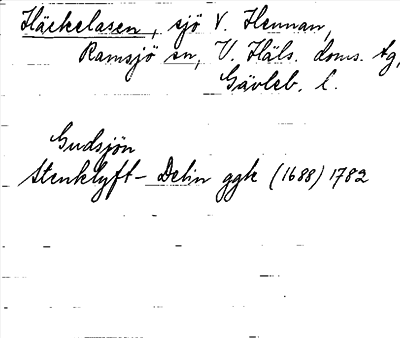 Häckelasen, sjö V. Hennan,
Ramsjö sn, V. Häls. doms. tg,
Gävleb. l.
Gudsjön
Stenklyft – Delin ggk (1688) 1782